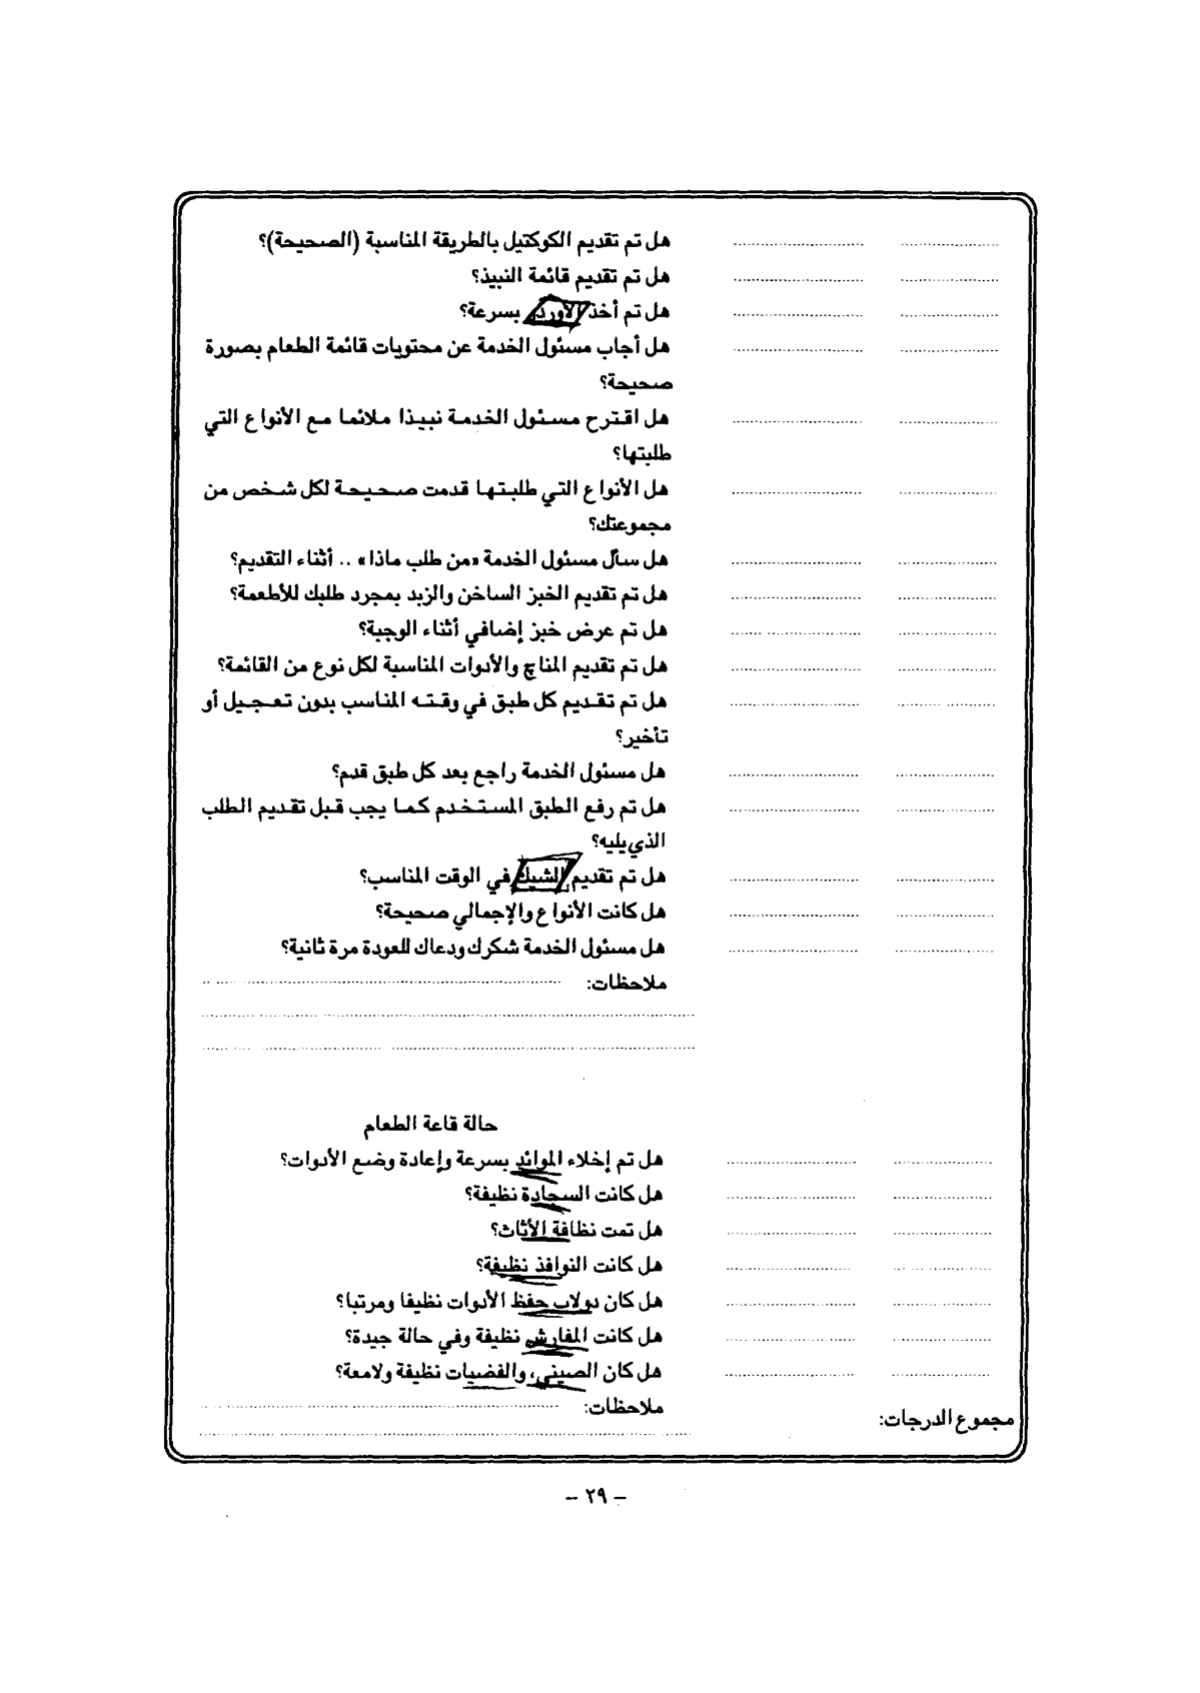 هل تم تقديم الكوكتيل بالطريقة المناسبة (الصحيحة)؟
هل تم تقديم قائمة النبيذ؟
هل تم أخذ الأوردر بسرعة؟
هل أجاب مسئول الخدمة عن محتويات قائمة الطعام بصورة
صحيحة؟
هل اقترح مسئول الخدمة نبيذا ملائما مع الأنواع التي
طلبتها؟
هل الأنواع التي طلبتها قدمت صحيحة لكل شخص من
مجموعتك؟
هل سأل مسئول الخدمة «من طلب ماذا» .. أثناء التقديم؟
هل تم تقديم الخبز الساخن والزبد بمجرد طلبك للأطعمة؟
هل تم عرض خبز إضافي أثناء الوجبة؟
هل تم تقديم المناج والأدوات المناسبة لكل نوع من القائمة؟
هل تم تقديم كل طبق في وقته المناسب بدون تعجيل أو
تأخير؟
هل مسئول الخدمة راجع بعد كل طبق قدم؟
هل تم رفع الطبق المستخدم كما يجب قبل تقديم الطلب
الذي يليه؟
هل تم تقديم الشيك في الوقت المناسب؟
هل كانت الأنواع والإجمالي صحيحة؟
هل مسئول الخدمة شكرك ودعاك للعودة مرة ثانية؟
ملاحظات:
حالة قاعة الطعام
هل تم إخلاء الموائد بسرعة وإعادة وضع الأدوات؟
هل كانت السجادة نظيفة؟
هل تمت نظافة الأثاث؟
هل كانت النوافذ نظيفة؟
هل كان دولاب حفظ الأدوات نظيفا ومرتبا؟
هل كانت المفارش نظيفة وفي حالة جيدة؟
هل كان الصيني، والفضيات نظيفة ولامعة؟
ملاحظات:
مجموع الدرجات:
– ٢٩ –